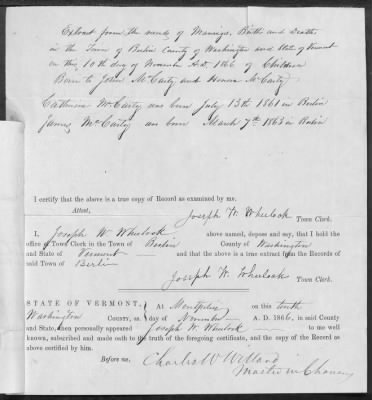 Extract from the records of Marriages, Births and Deaths
in the Town of Berlin County of Washington and State of Vermont
on this 10th day of November A.D. 1866 of Children
Born to John McCarty and Honora McCarty
Catharine McCarty was born July 13th 1861 in Berlin
James McCarty was born March 7th 1863 in Berlin
I certify that the above is a true copy of Record as examined by me.
Attest,
Joseph W. Wheelock Town Clerk.
I, Joseph W. Wheelock above named, depose and say, that I hold the
office of Town Clerk in the Town of Berlin County of Washington
and State of Vermont and that the above is a true extract from the Records of
said Town of Berlin
Joseph W. Wheelock Town Clerk.
STATE OF VERMONT, At Montpelier on this tenth
Washington COUNTY, ss. day of November A. D. 1866, in said County
and State, then personally appeared Joseph W. Wheelock to me well
known, subscribed and made oath to the truth of the foregoing certificate, and the copy of the Record as
above certified by him.
Before me, Charles W Willard
Master in Chancery